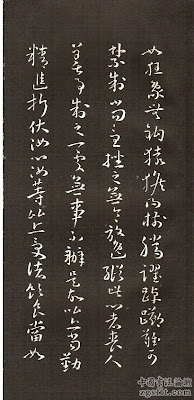 如狂象無鈎猿猴得樹騰躍踔躑難可
禁制當急挫之無令放逸縱此心者喪人
善事制之一處無事不辦是故比丘當勤
精進折伏汝心汝等比丘受諸飲食當如